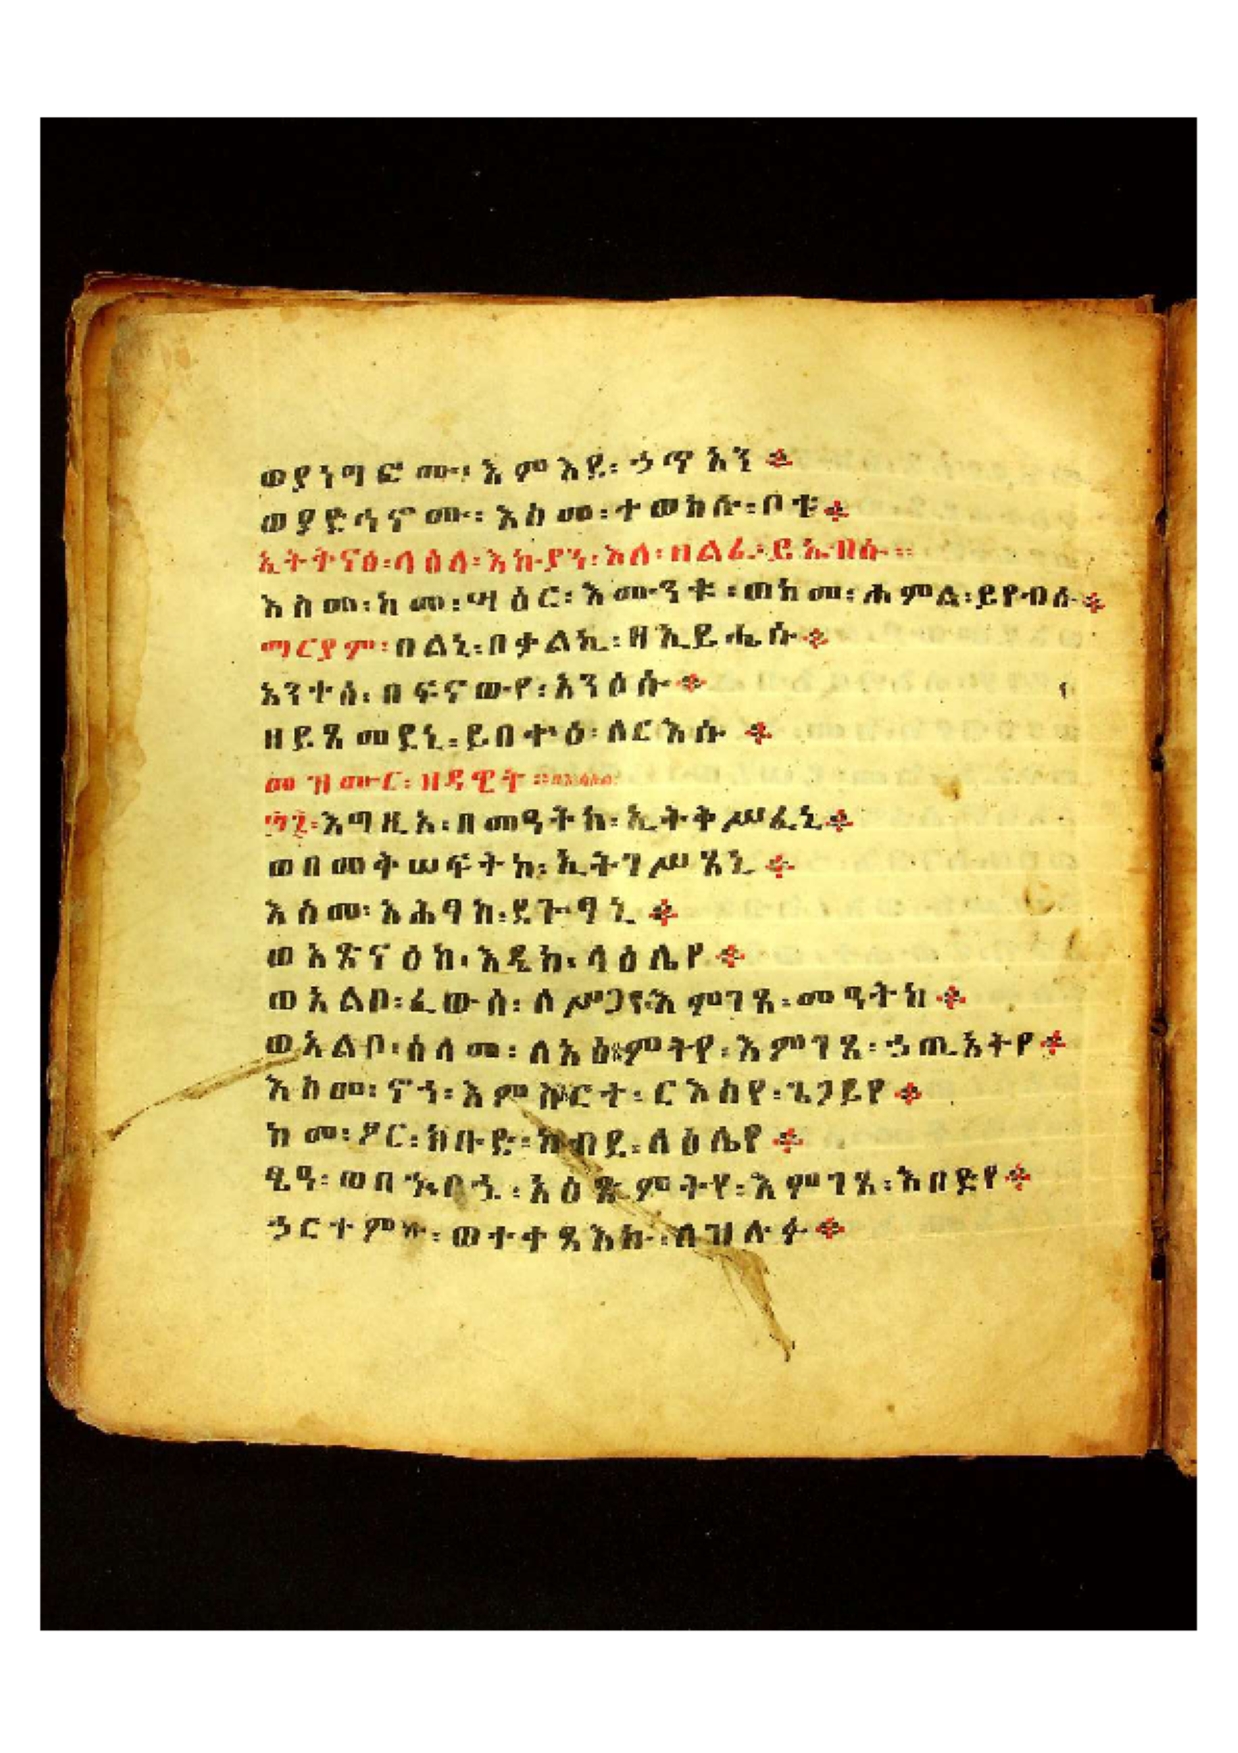 ወያነግፎሙ፡ እምእደ፡ ኃጥአን
ወያድኅኖሙ፡ እስመ፡ ተወከሉ፡ ቦቱ
ኢትትናፅ፡ ላዕለ፡ እኩያን፡ እለ፡ ዘልፈ፡ ይኤብሱ።
እስመ፡ ከመ፡ ሣዕር፡ እሙንቱ፡ ወከመ፡ ሐምል፡ ይየብሱ
ማርያም፡ በልኒ፡ በቃልኪ፡ ዘኢይሔሱ
አንተሰ፡ በፍኖውየ፡ አንዕሱ
ዘይጼመደኒ፡ ይበቍዕ፡ ለርእሱ
መዝሙር፡ ዘዳዊት።
፴፯፡ እግዚኦ፡ በመዓትከ፡ ኢትቅሥፈኒ
ወበመቅሠፍትከ፡ ኢትገሥጸኒ
እስመ፡ አሕፃከ፡ ደጐፃኒ
ወአጽናዕከ፡ እዴከ፡ ላዕሌየ
ወአልቦ፡ ፈውሰ፡ ለሥጋየ፡ እምገጸ፡ መዓትከ
ወአልቦ፡ ሰላመ፡ ለአዕፅምትየ፡ እምገጸ፡ ኃጢአትየ
እስመ፡ ኖኀ፡ እምሥዕርተ፡ ርእስየ፡ ጌጋይየ
ከመ፡ ጾር፡ ክቡድ፡ ከብደ፡ ላዕሌየ
ፄዓ፡ ወበኈበኈ፡ አዕጽምትየ፡ እምገጸ፡ እበድየ
ኃርተምኩ፡ ወተቀጻእኩ፡ ለዝሉፉ